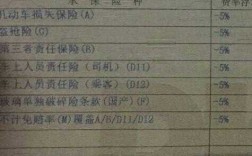 保 险 险 种 费率浮
机动车损失保险(A) -5%
盗抢险(G) -5%
第三者责任保险(B) -5%
车上人员责任险(司机)(D11) -5%
车上人员责任险(乘客)(D12) -5%
玻璃单独破碎险条款(国产)(F) -5%
不计免赔率(M)覆盖A/B/D11/D12 -5%